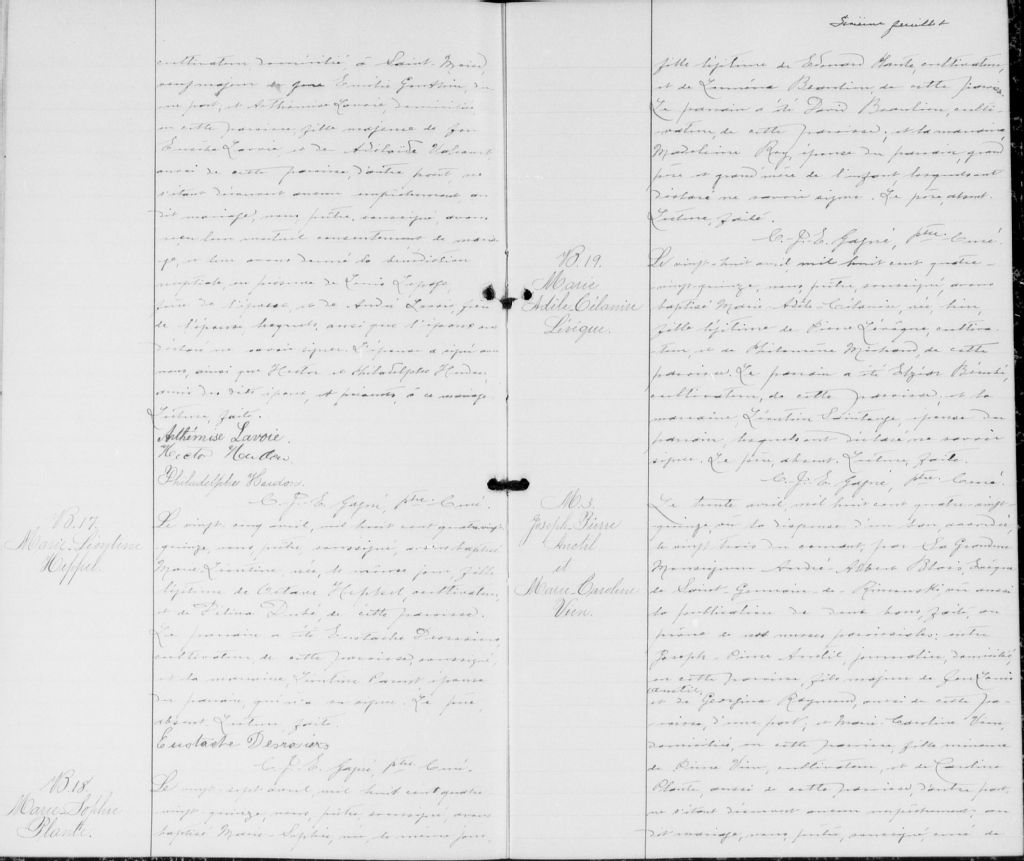 cultivateur domicilié à Saint-Moïse,
en cette paroisse, fille majeure de feu
Lavoie, et de Adélaïde Valcourt
aussi de cette paroisse, d'autre part, ne
s'étant découvert aucun empêchement au
dit mariage, nous, prêtre, soussigné, avons
reçu leur mutuel consentement de maria-
ge, et leur avons donné la bénédiction
nuptiale, en présence de Louis Lepage,
père de l'époux, et de André Lavoie, frère
de l'épouse lesquels, ainsi que l'époux ont
déclaré ne savoir signer. L'épouse a signé avec
nous, ainsi que Hector et Philadelphe Heudon
amis des dits époux, et présents, à ce mariage.
Lecture, faite.
Arthémise Lavoie.
Hector Heudon
Philadelphe Heudon.
C. J. E. Gagné, ptre Curé.
B. 17.
Marie-Léontine
Heppel.
Le vingt-cinq avril, mil huit cent quatre-vingt
quinze, nous, prêtre, soussigné, avons baptisé
Marie Léontine, née, le même jour, fille
légitime de Octave Heppel, cultivateur,
et de Délina Dubé, de cette paroisse.
Le parrain a été Eustache Desrosiers
cultivateur de cette paroisse, soussigné,
et la marraine, Léontine Parent épouse
du parrain, qui n'a su signer. Le père,
absent. Lecture, faite.
Eustache Desrosiers
C. J. E. Gagné, ptre Curé.
B. 18.
Marie-Sophie
Plante.
Le vingt-sept avril, mil huit cent quatre-
vingt-quinze, nous, prêtre, soussigné, avons
baptisé Marie-Sophie, née, le même jour,
feuillet
fille légitime de Edouard Plante, cultivateur,
et de Beaulieu, de cette paroisse.
Le parrain a été David Beaulieu, culti-
vateur, de cette paroisse, et la marraine
Madeleine Roy, épouse du parrain, grand
père et grand'mère de l'enfant lesquels ont
déclaré ne savoir signer. Le père absent.
Lecture, faite.
C. J. E. Gagné, ptre Curé.
B. 19.
Marie
Adèle-Célanire
Lévêque.
Le vingt-huit avril, mil huit cent quatre-
vingt-quinze, nous, prêtre, soussigné, avons
baptisé Marie Adèle-Célanire, née, hier,
fille légitime de Pierre Lévêque, cultiva-
teur, et de Philomène Michaud, de cette
paroisse. Le parrain a été Elzéar Bérubé,
cultivateur, de cette paroisse, et la
marraine, Léontine épouse du
parrain, lesquels ont déclaré ne savoir
signer. Le père, absent. Lecture, faite.
C. J. E. Gagné, ptre Curé.
M. 3.
Joseph-Pierre
Anctil
et
Marie-Caroline
Vien.
Le trente avril, mil huit cent quatre-vingt
quinze, vu la dispense d'un ban, accordée,
le vingt-trois du courant, par Sa Grandeur
Monseigneur André-Albert Blais, Evêque
de Saint-Germain de Rimouski, vu aussi
la publication de deux bans, faite, au
prône de nos messes paroissiales, entre
Joseph-Pierre Anctil, journalier, domicilié,
en cette paroisse, fils majeur de feu Louis
Anctil,
et de Georgina Raymond, aussi de cette pa-
roisse, d'une part, et Marie-Caroline Vien,
domiciliée, en cette paroisse, fille mineure
de Pierre Vien, cultivateur, et de Caroline
Plante, aussi de cette paroisse, d'autre part,
ne s'étant découvert aucun empêchement, au
dit mariage, nous, prêtre, soussigné, curé de